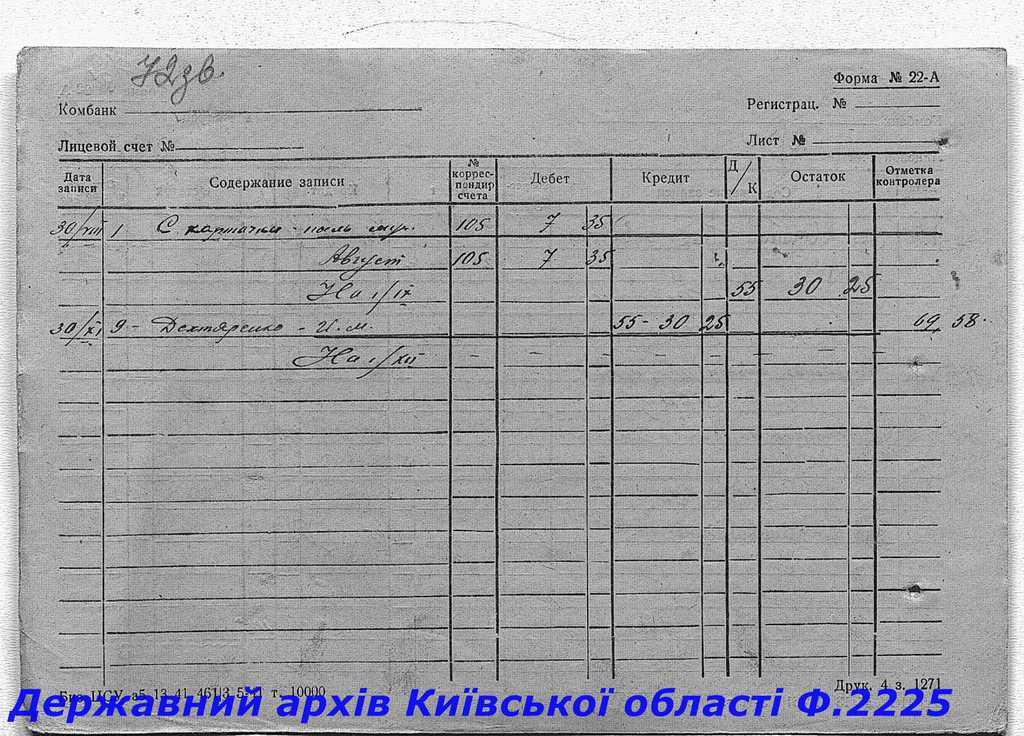 72 зв.
Форма № 22-А
Комбанк
Регистрац. №
Лицевой счет №
Лист №
Дата записи
Содержание записи
№ корреспондир счета
Дебет
Кредит
Д/К
Остаток
Отметка контролера
30/VIII 1 С карточки 105 7 35
Август 105 7 35
На 1/IX 55 30 25
30/XI 9 - Дехтяренко - И. М. 55 - 30 25 69 58
На 1/XII - - - - - - -
Биз ЦСУ 13 41 т. 10000
Друк. 4 з. 1271
Державний архів Київської області Ф.2225